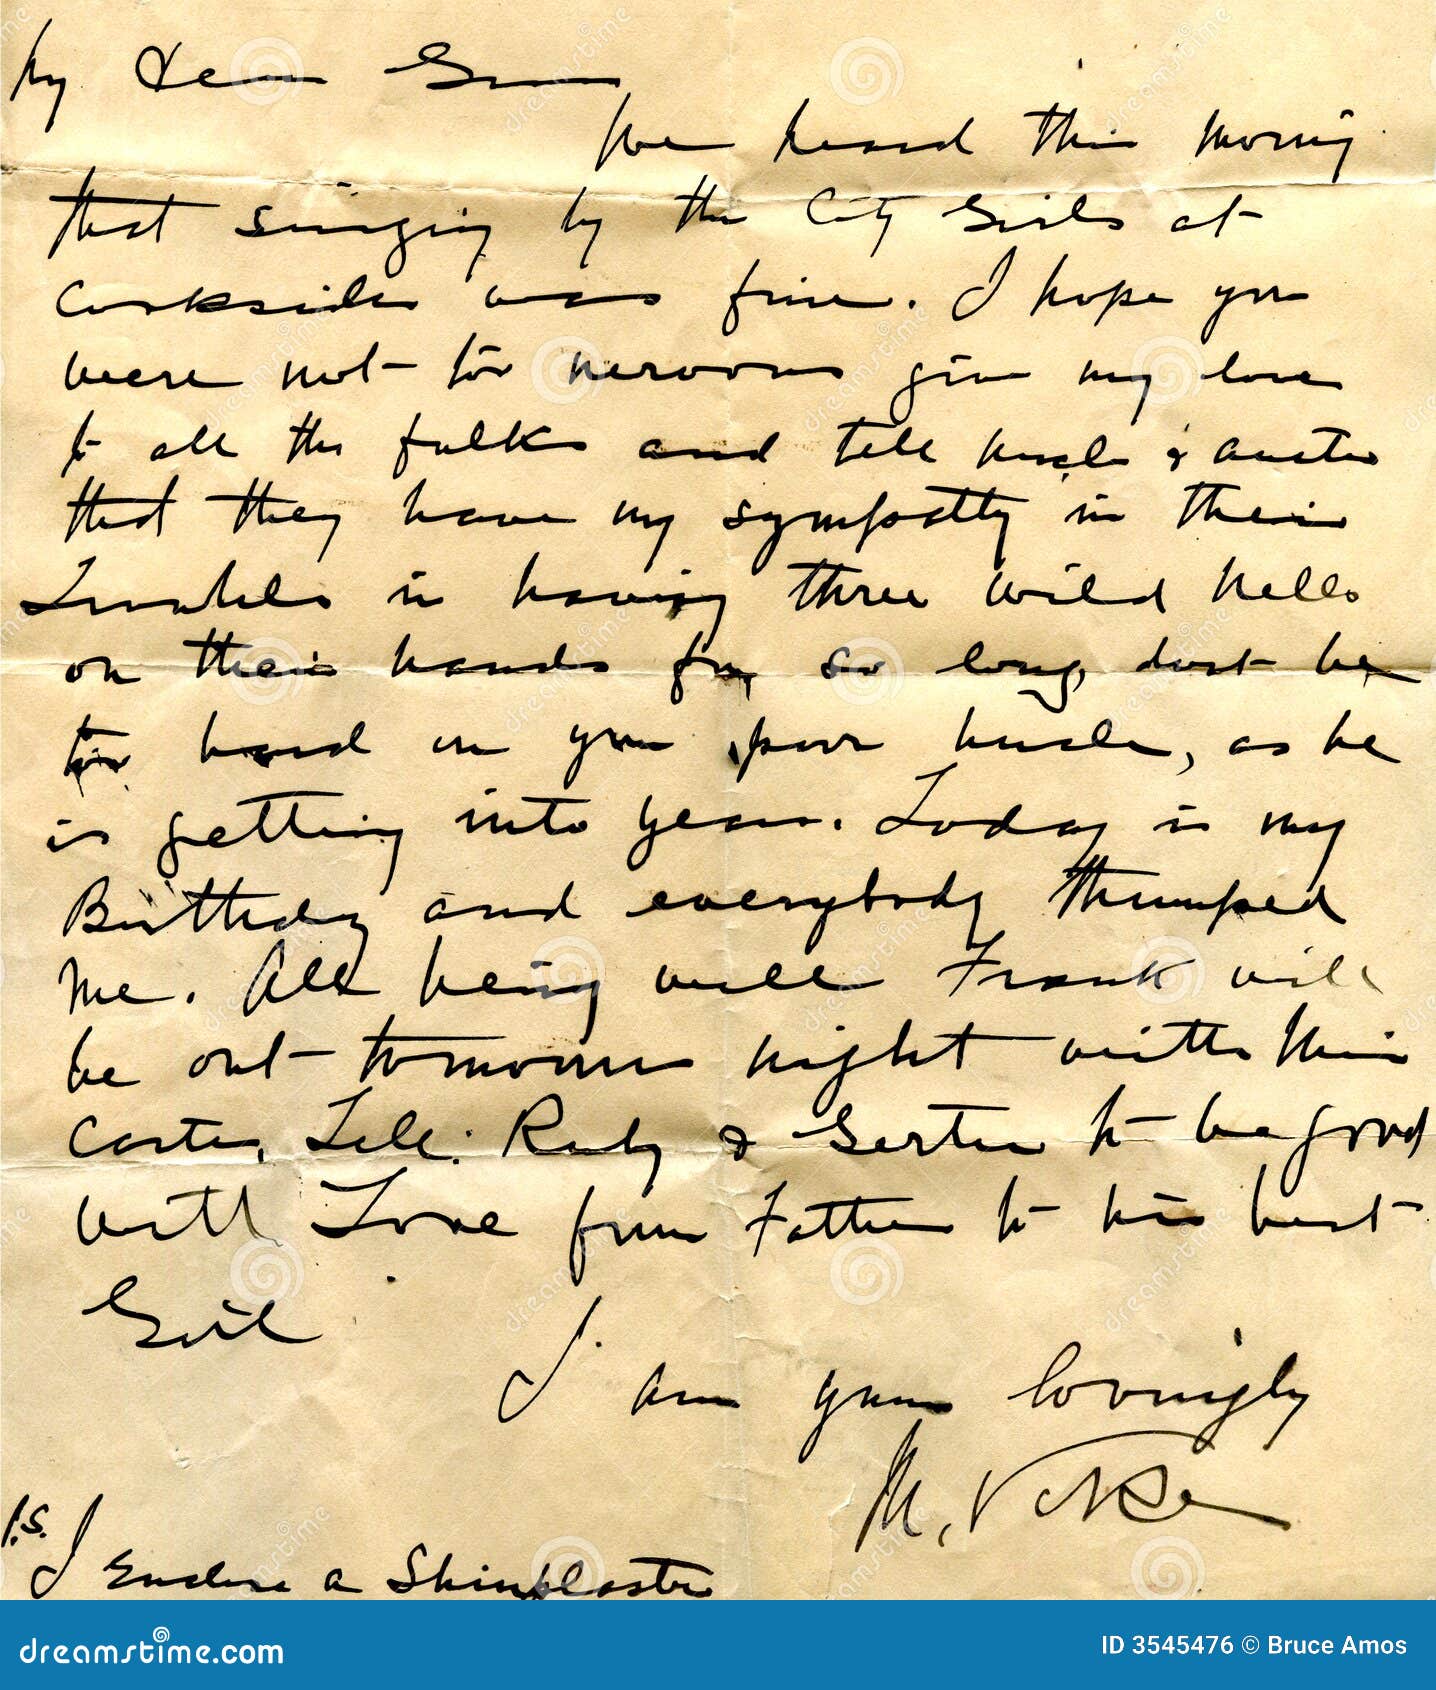 My Dear
We heard this morning
that singing by the City Girls at
was fine. I hope you
were not too nervous give my love
to all the folks and tell Uncle & Auntie
that they have my sympathy in their
Troubles in having three wild hells
on their hands for so long, dont be
too hard on your poor Uncle, as he
is getting into years. Today is my
Birthday and everybody thumped
me. All being well Frank will
be out tomorrow night with
Tell Ruby & Gertie to be good
with Love from Father to his best
Girl
I am yours lovingly
M.
P.S.
I Enclose a Shinplaster
dreamstime.com
ID 3545476 © Bruce Amos